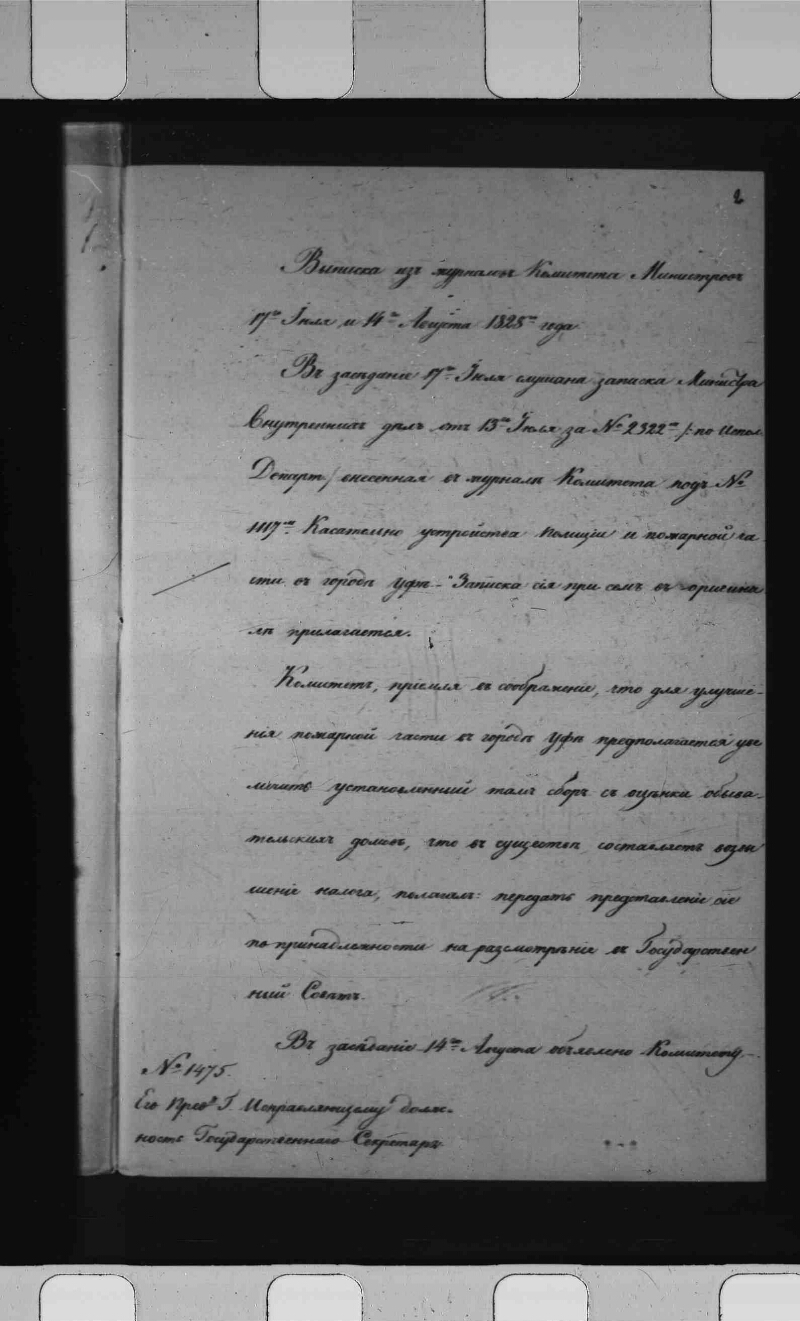 2
Выписка изъ журналовъ Комитета Министровъ
17го Iюля и 14го Августа 1828го года.
Въ заседанiе 17го Iюля слушана записка Министра
Внутреннихъ делъ отъ 13го Iюля за № 2322м /: по Испол.
Департ:/ внесенная въ журналъ Комитета подъ №
1117м Касательно устройства Полицiи и пожарной ча-
сти въ городѣ Уфѣ. Записка сiя при семъ въ оригина-
лѣ прилагается.
Комитетъ, прiемля въ соображенiе, что для улучше-
нiя пожарной части въ городѣ Уфѣ предполагается уве-
личить установленный тамъ сборъ съ оцѣнки обыва-
тельскихъ домовъ, что въ существѣ составляетъ возвы-
шенiе налога, полагалъ: передать представленiе сiе
по принадлежности на разсмотрѣнiе въ Государствен-
ный Совѣтъ.
Въ заседанiе 14го Августа объявлено Комитету,
№ 1475.
Его Прев. Г. Исправляющему долж-
ность Государственнаго Секретаря